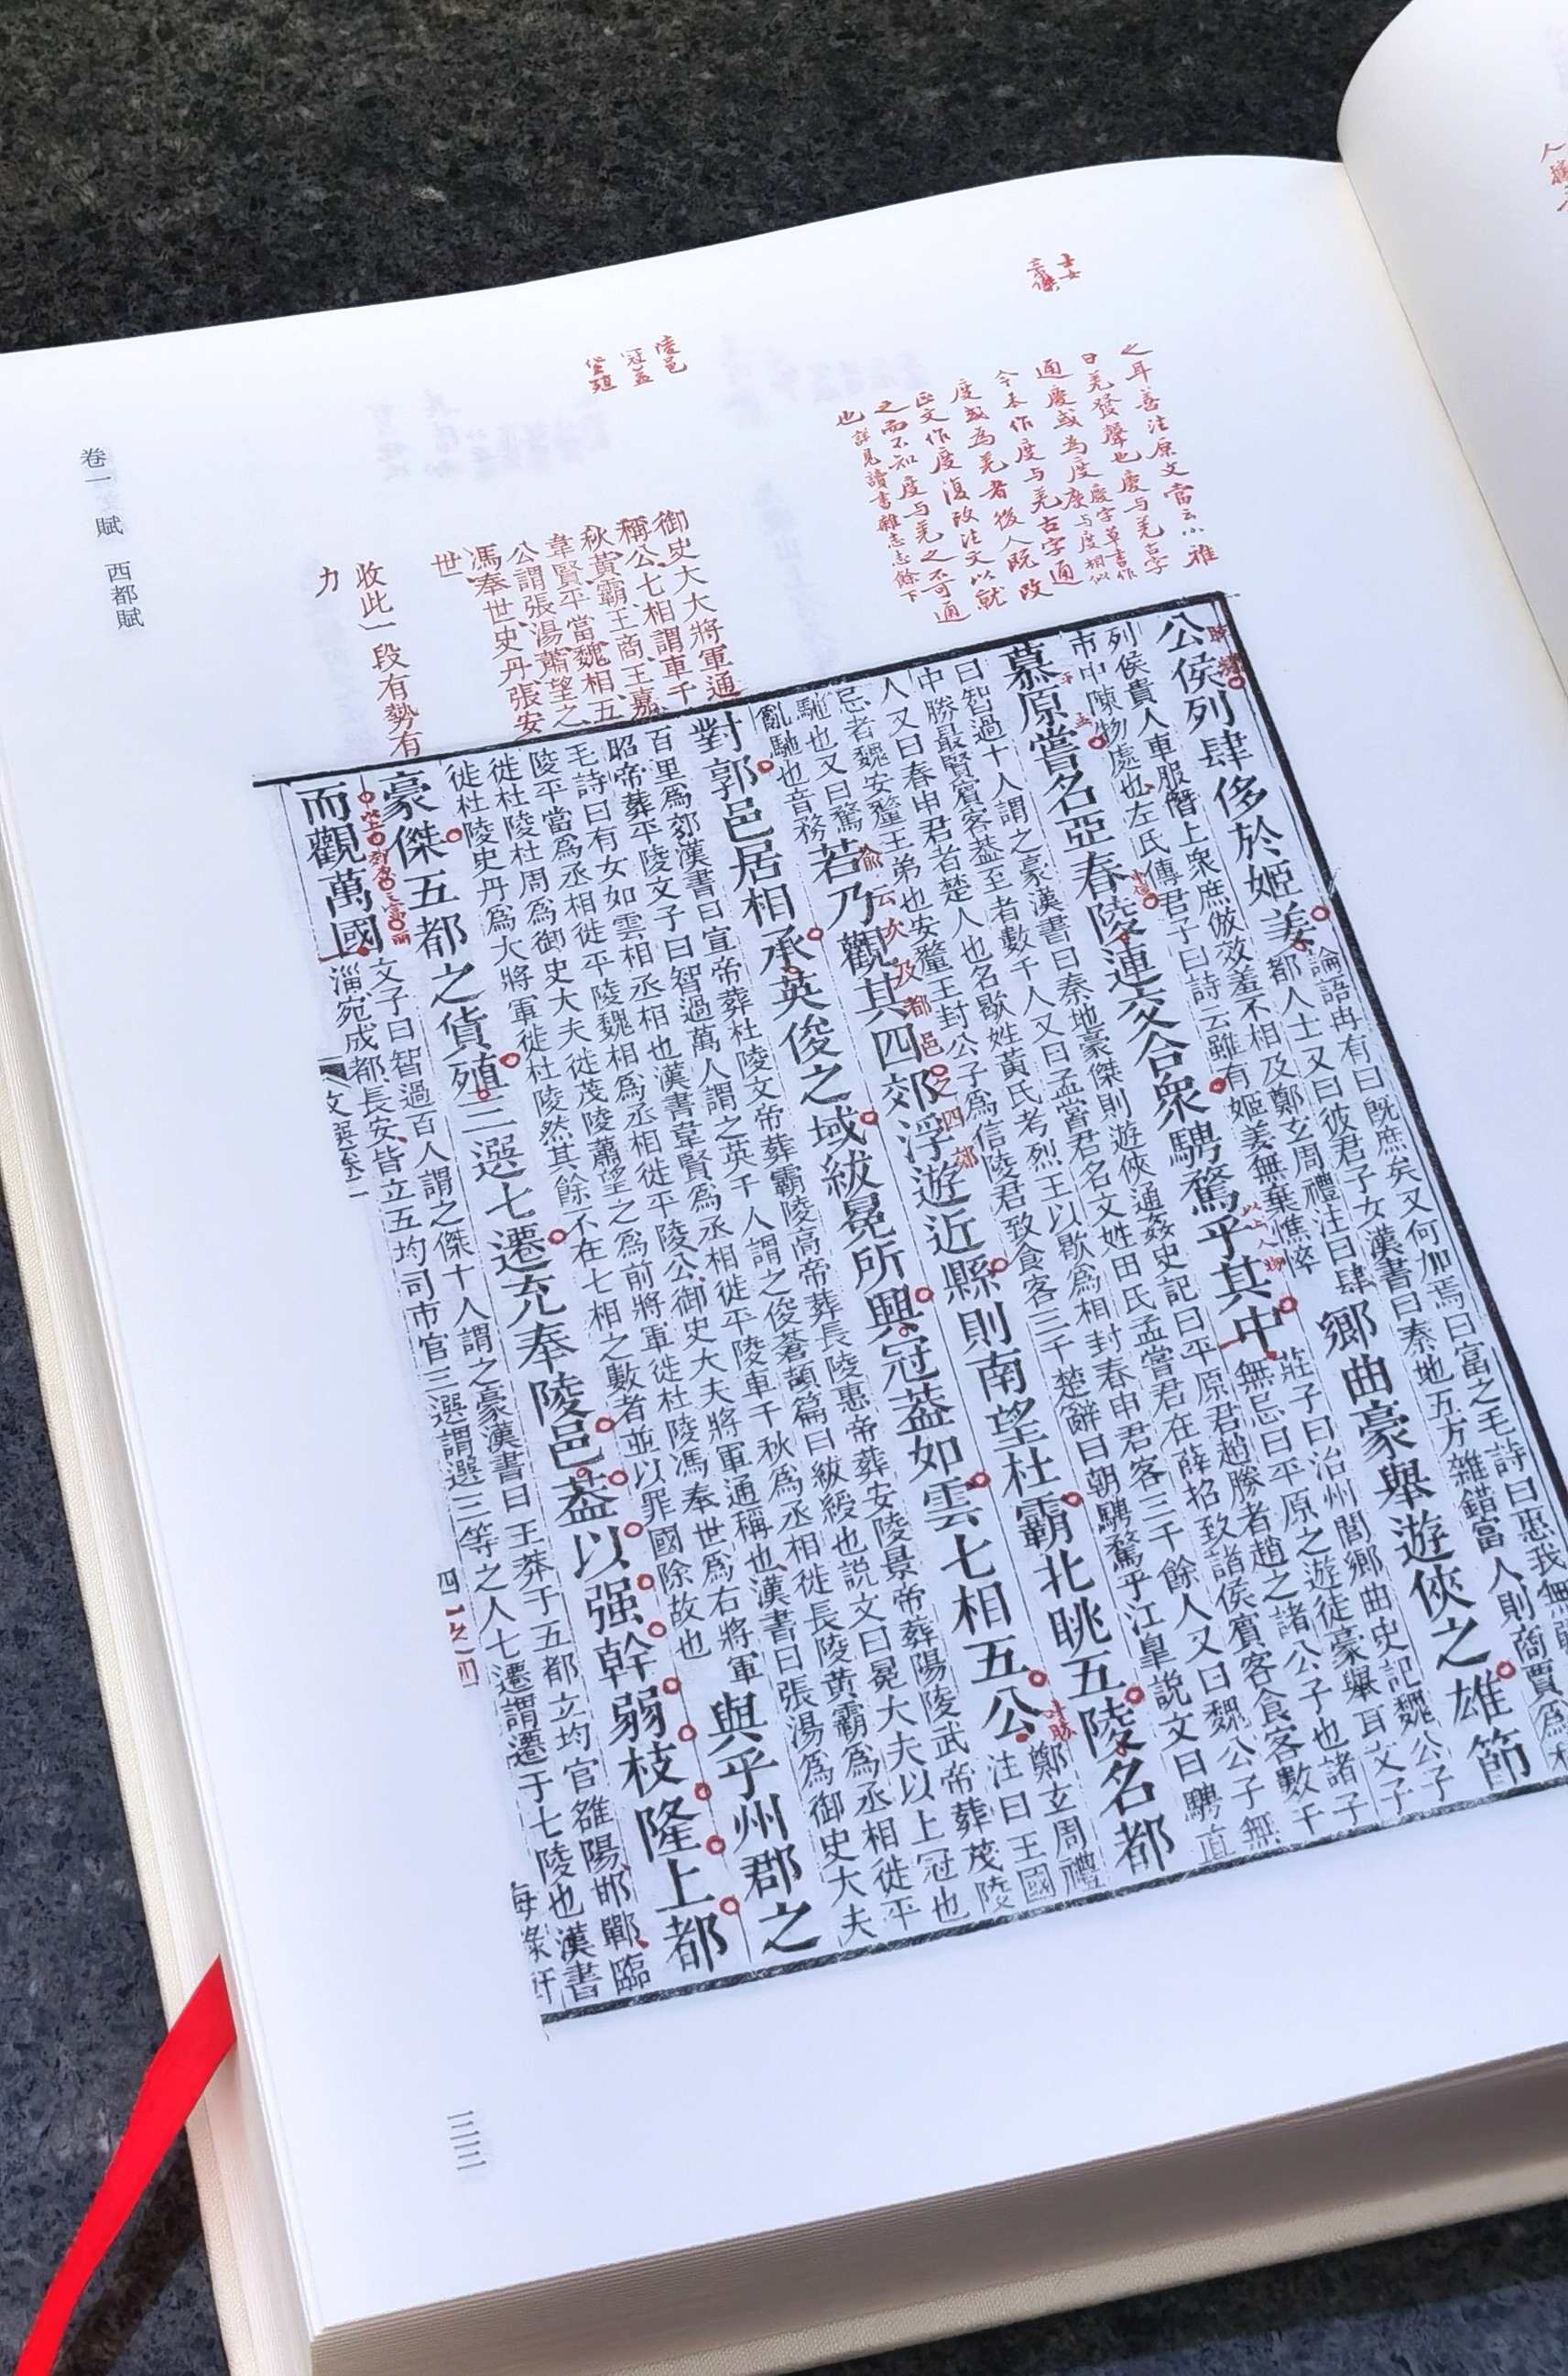 卷一 賦 西都賦
士女
豪傑
之耳善注原文當云小雅
曰羌發聲也慶与羌古字
通慶或為度
慶字草書作
度与度相似
今本作度与羌古字通
度或為羌者後人既改
正文作度復改注文以就
之而不知度与羌之不可通
也
詳見讀書雜志志餘下
陵邑
冠蓋
貨殖
御史大大將軍通
稱公七相謂車千
秋黃霸王商王嘉
韋賢平當魏相五
公謂張湯蕭望之
馮奉世史丹張安
世
收此一段有勢有
力
公侯列肆侈於姬姜
論語冉有曰既庶矣又何加焉曰富之毛詩曰惠我無疆
都人士又曰彼君子女漢書曰秦地五方雜錯富人則商賈為利
列侯貴人車服僭上眾庶倣效羞不相及鄭玄周禮注曰肆
市中陳物處也左氏傳君子曰詩云雖有姬姜無棄憔悴
鄉曲豪舉遊俠之雄節
慕原嘗名亞春陵連交合眾騁騖乎其中
以上人物
莊子曰治州閭鄉曲史記魏公子
無忌曰平原之遊徒豪舉耳文子
曰智過十人謂之豪漢書曰秦地豪傑則遊俠通姦史記曰平原君趙勝者趙之諸公子也諸子
中勝最賢賓客蓋至者數千人又曰孟嘗君名文姓田氏孟嘗君在薛招致諸侯賓客食客數千
人又曰春申君者楚人也名歇姓黃氏考烈王以歇為相封春申君客三千餘人又曰魏公子無
忌者魏安釐王弟也安釐王封公子為信陵君致食客三千楚辭曰朝騁騖乎江皐說文曰騁直
馳也又曰騖
亂馳也音務
若乃觀其四郊浮遊近縣則南望杜霸北眺五陵名都
次及都邑之四郊
對郭邑居相承英俊之域紱冕所興冠蓋如雲七相五公
鄭玄周禮
注曰王國
百里為郊漢書曰宣帝葬杜陵文帝葬霸陵高帝葬長陵惠帝葬安陵景帝葬陽陵武帝葬茂陵
昭帝葬平陵文子曰智過萬人謂之英千人謂之俊蒼頡篇曰紱綬也說文曰冕大夫以上冠也
毛詩曰有女如雲相丞相也漢書韋賢為丞相徙平陵車千秋為丞相徙長陵黃霸為丞相徙平
陵平當為丞相徙平陵魏相為丞相徙平陵公御史大夫將軍通稱也漢書曰張湯為御史大夫
徙杜陵杜周為御史大夫徙茂陵蕭望之為前將軍徙杜陵馮奉世為右將軍
徙杜陵史丹為大將軍徙杜陵然其餘不在七相之數者並以罪國除故也
與乎州郡之
豪傑五都之貨殖三選七遷充奉陵邑蓋以强幹弱枝隆上都
而觀萬國
文子曰智過百人謂之傑十人謂之豪漢書曰王莽于五都立均官雒陽邯鄲臨
淄宛成都長安皆立五均司市官三選謂選三等之人七遷謂遷于七陵也漢書
文選卷一
四
海錄軒
三三